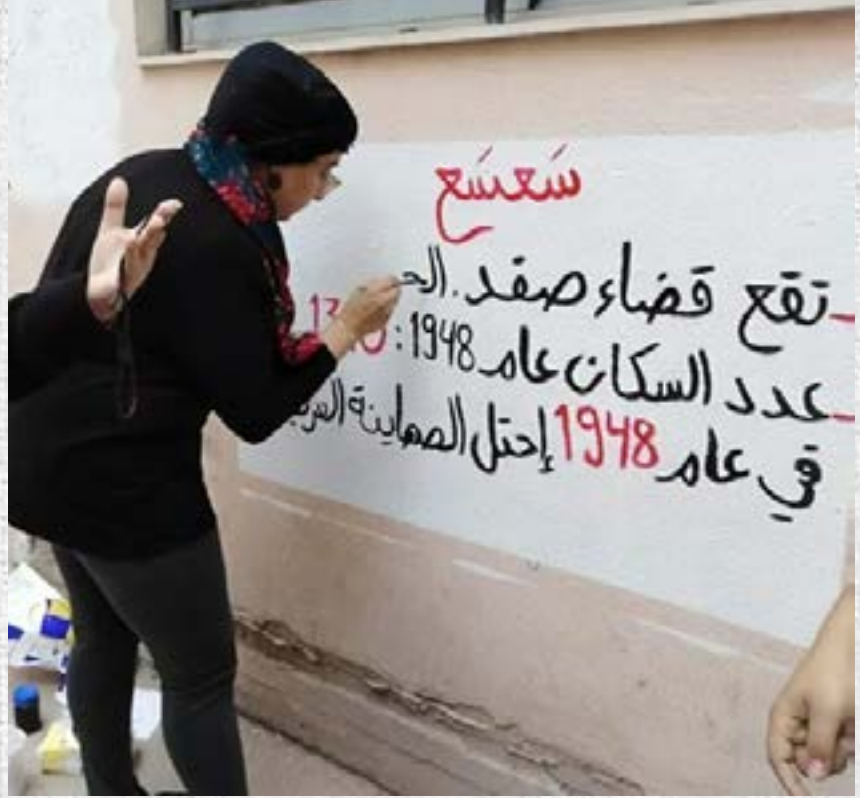 سَعسَع
- تقع قضاء صفد. الحـ
- عدد السكان عام 1948:
في عام 1948 إحتل الصهاينة